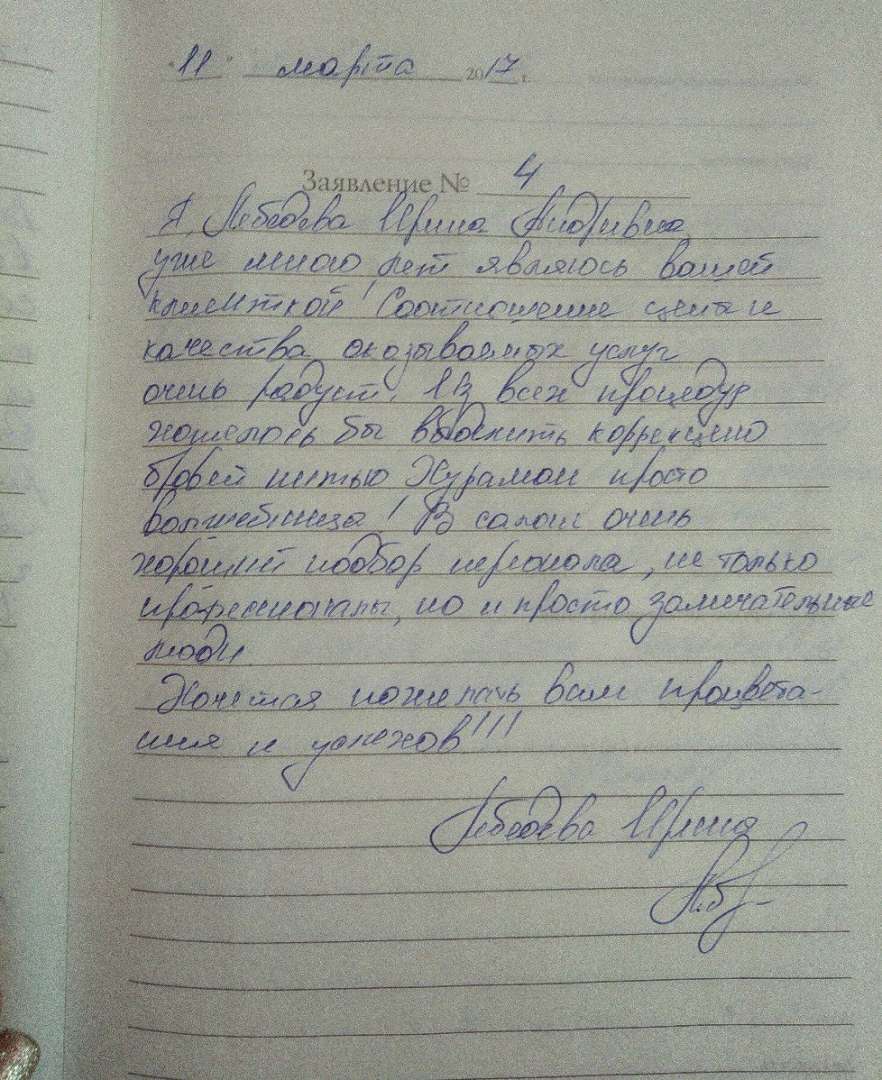 "11" марта 2017 г.
Заявление № 4
Я, Лебедева Ирина Андреевна
уже много лет являюсь вашей
клиенткой! Соотношение цены и
качества оказываемых услуг
очень радует. Из всех процедур
хотелось бы выделить коррекцию
бровей нитью Хурамон просто
волшебница! В салоне очень
хороший подбор персонала, не только
профессионалы, но и просто замечательные
люди.
Хочется пожелать вам процвета-
ния и успехов!!!
Лебедева Ирина